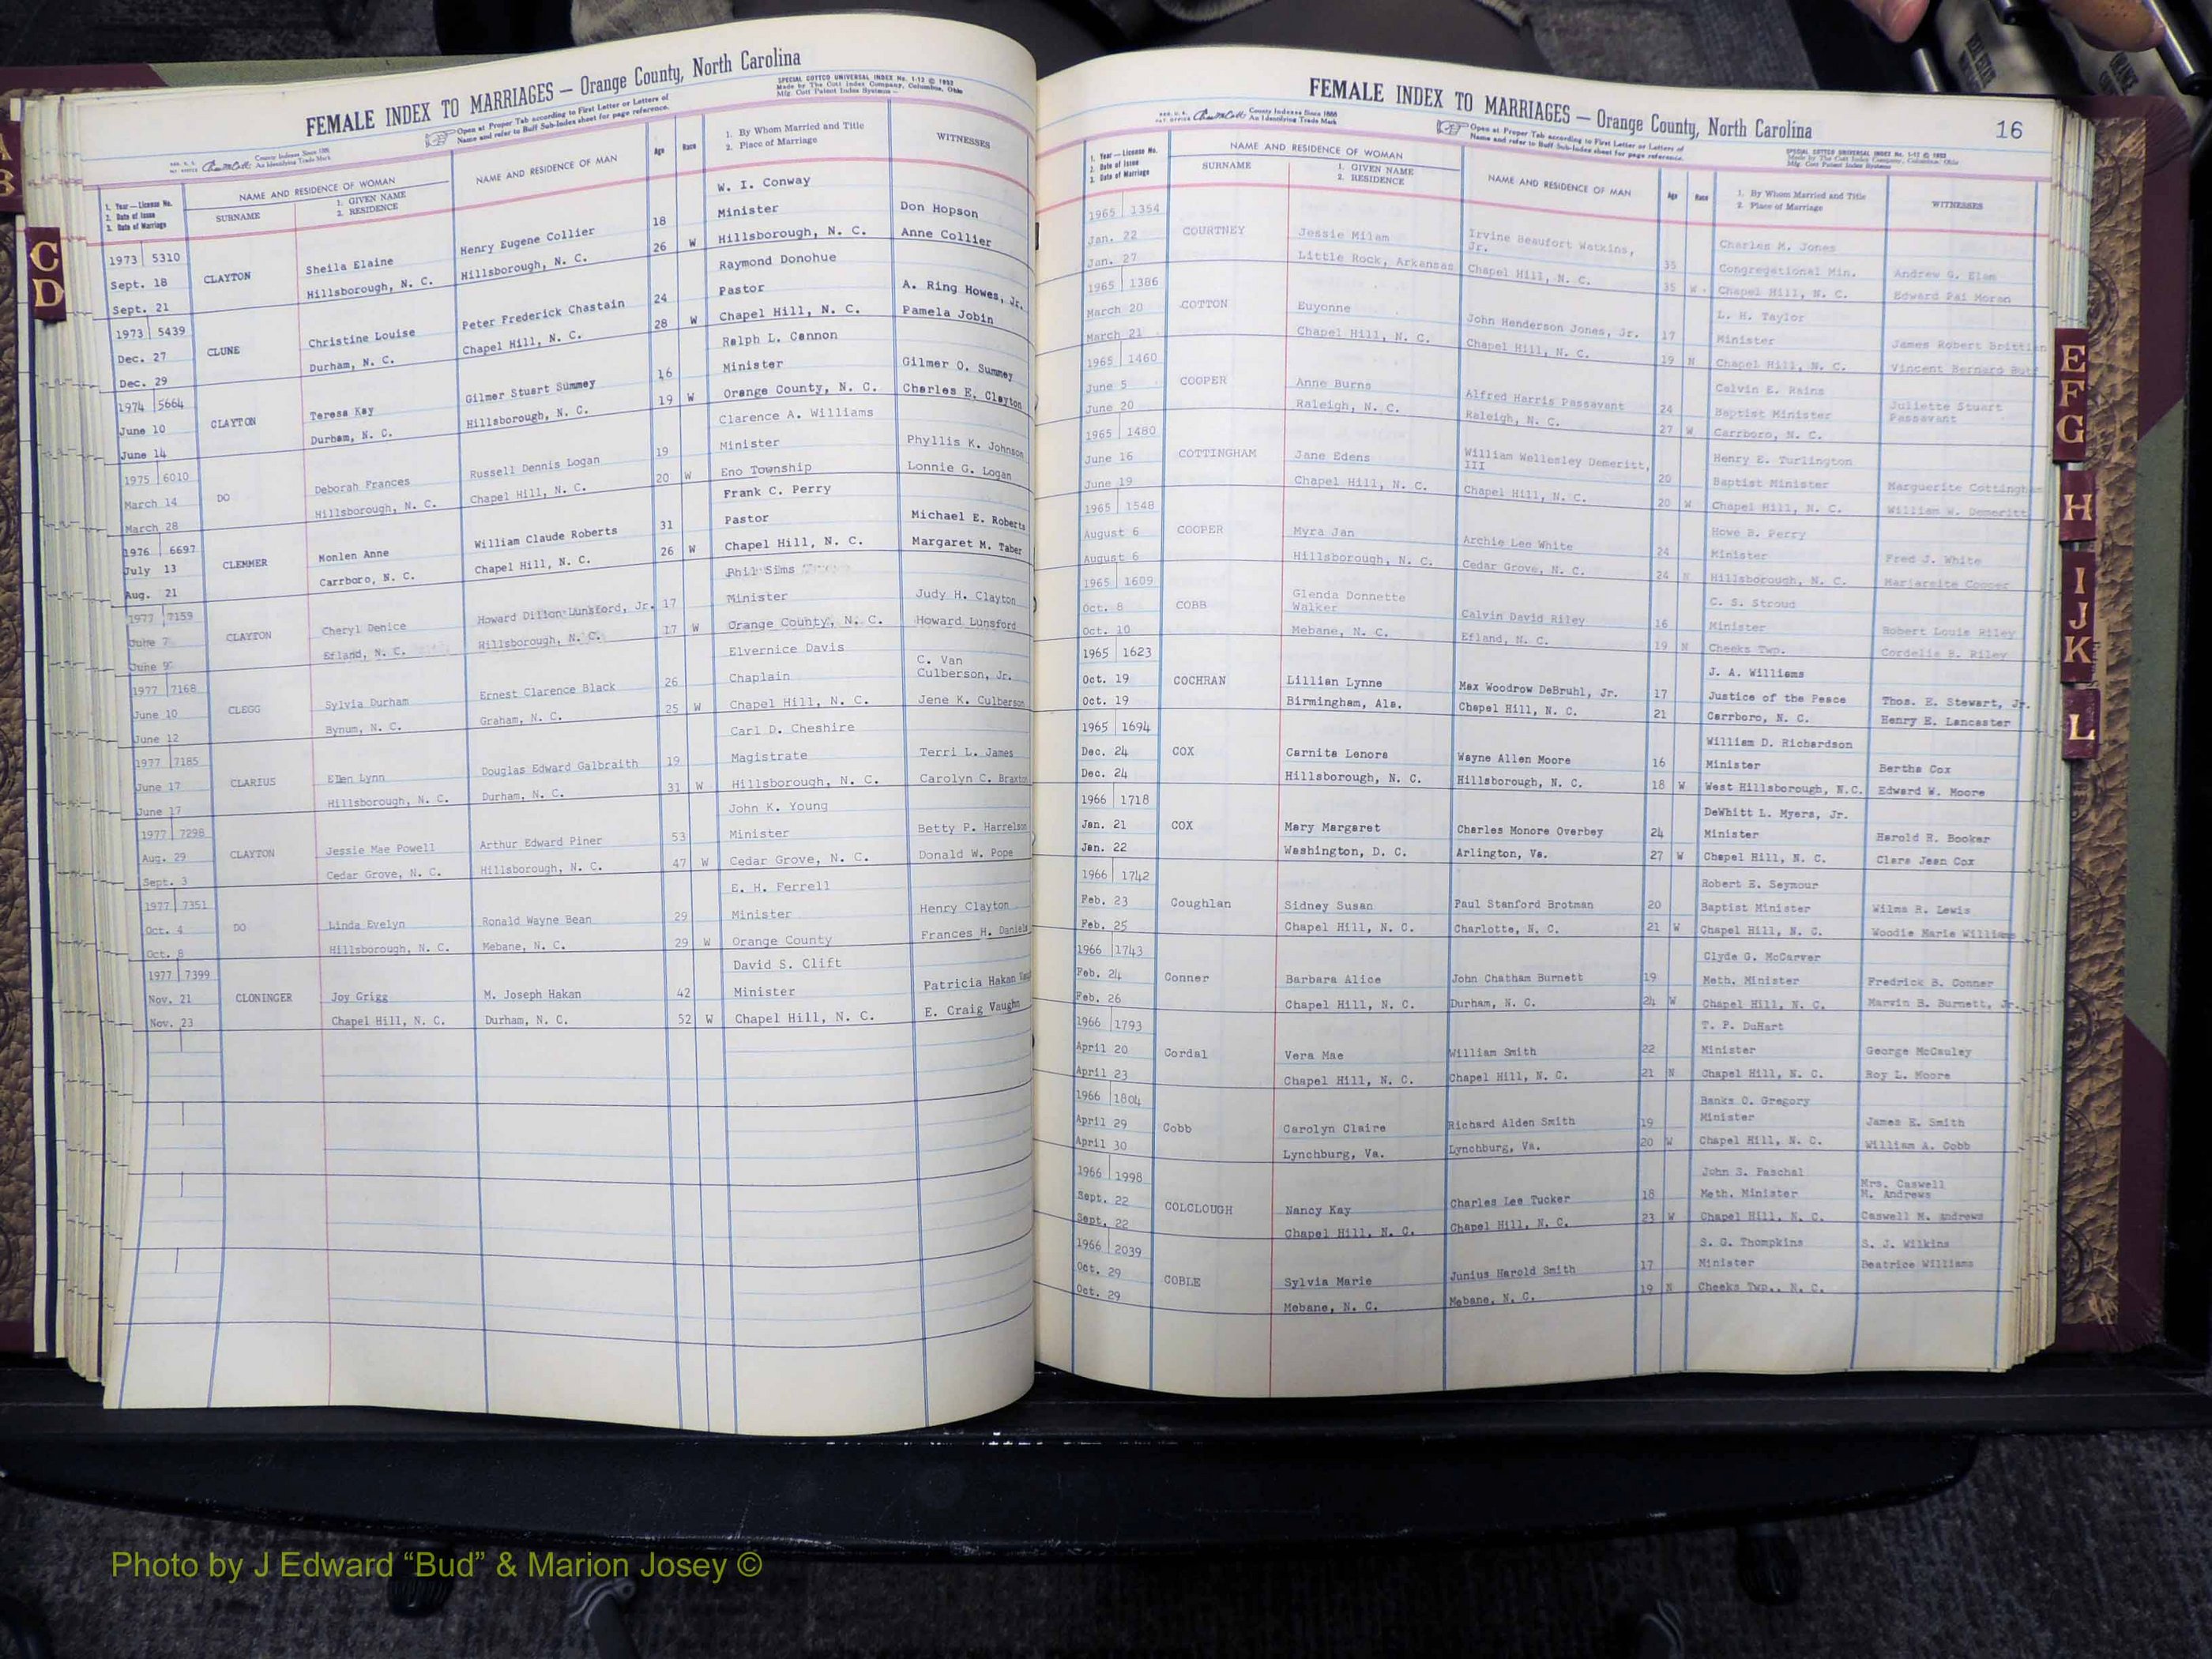 FEMALE INDEX TO MARRIAGES — Orange County, North Carolina
SPECIAL COTTCO UNIVERSAL INDEX No. 1-12 © 1952
Made by The Cott Index Company, Columbus, Ohio
Open at Proper Tab according to First Letter or Letters of
Name and refer to Buff Sub-Index sheet for page reference.
County Indexes Since 1888
An Identifying Trade Mark
1. Year — License No.
2. Date of Issue
3. Date of Marriage
NAME AND RESIDENCE OF WOMAN
SURNAME
1. GIVEN NAME
2. RESIDENCE
NAME AND RESIDENCE OF MAN
Age
Race
1. By Whom Married and Title
2. Place of Marriage
WITNESSES
W. I. Conway
1973 5310 Henry Eugene Collier 18 Minister Don Hopson
Sept. 18 CLAYTON Sheila Elaine Hillsborough, N. C. 26 W Hillsborough, N. C. Anne Collier
Sept. 21 Hillsborough, N. C.
Raymond Donohue
1973 5439 Peter Frederick Chastain 24 Pastor A. Ring Howes, Jr.
Dec. 27 CLUNE Christine Louise Chapel Hill, N. C. 28 W Chapel Hill, N. C. Pamela Jobin
Dec. 29 Durham, N. C.
Ralph L. Cannon
1974 5664 Gilmer Stuart Summey 16 Minister Gilmer O. Summey
June 10 CLAYTON Teresa Kay Hillsborough, N. C. 19 W Orange County, N. C. Charles E. Clayton
June 14 Durham, N. C.
Clarence A. Williams
1975 6010 Russell Dennis Logan 19 Minister Phyllis K. Johnson
March 14 DO Deborah Frances Chapel Hill, N. C. 20 W Eno Township Lonnie G. Logan
March 28 Hillsborough, N. C.
Frank C. Perry
1976 6697 William Claude Roberts 31 Pastor Michael E. Roberts
July 13 CLEMMER Monlen Anne Chapel Hill, N. C. 26 W Chapel Hill, N. C. Margaret M. Taber
Aug. 21 Carrboro, N. C.
Phil Sims
1977 7159 Howard Dillon Lunsford, Jr. 17 Minister Judy H. Clayton
June 7 CLAYTON Cheryl Denice Hillsborough, N. C. 17 W Orange County, N. C. Howard Lunsford
June 9 Efland, N. C.
Elvernice Davis
1977 7168 Ernest Clarence Black 26 Chaplain C. Van Culberson, Jr.
June 10 CLEGG Sylvia Durham Graham, N. C. 25 W Chapel Hill, N. C. Jene K. Culberson
June 12 Bynum, N. C.
Carl D. Cheshire
1977 7185 Douglas Edward Galbraith 19 Magistrate Terri L. James
June 17 CLARIUS Ellen Lynn Durham, N. C. 31 W Hillsborough, N. C. Carolyn C. Braxton
June 17 Hillsborough, N. C.
John K. Young
1977 7298 Arthur Edward Piner 53 Minister Betty P. Harrelson
Aug. 29 CLAYTON Jessie Mae Powell Hillsborough, N. C. 47 W Cedar Grove, N. C. Donald W. Pope
Sept. 3 Cedar Grove, N. C.
E. H. Ferrell
1977 7351 Ronald Wayne Bean 29 Minister Henry Clayton
Oct. 4 DO Linda Evelyn Mebane, N. C. 29 W Orange County Frances H. Daniels
Oct. 8 Hillsborough, N. C.
David S. Clift
1977 7399 M. Joseph Hakan 42 Minister Patricia Hakan
Nov. 21 CLONINGER Joy Grigg Durham, N. C. 52 W Chapel Hill, N. C. E. Craig Vaughn
Nov. 23 Chapel Hill, N. C.
FEMALE INDEX TO MARRIAGES — Orange County, North Carolina
16
County Indexes Since 1888
An Identifying Trade Mark
Open at Proper Tab according to First Letter or Letters of
Name and refer to Buff Sub-Index sheet for page reference.
SPECIAL COTTCO UNIVERSAL INDEX No. 1-12 © 1952
Made by The Cott Index Company, Columbus, Ohio
1. Year — License No.
2. Date of Issue
3. Date of Marriage
NAME AND RESIDENCE OF WOMAN
SURNAME
1. GIVEN NAME
2. RESIDENCE
NAME AND RESIDENCE OF MAN
Age
Race
1. By Whom Married and Title
2. Place of Marriage
WITNESSES
1965 1354 Charles M. Jones
Jan. 22 COURTNEY Jessie Milam Irvine Beaufort Watkins, Jr. 35 Congregational Min. Andrew G. Elam
Jan. 27 Little Rock, Arkansas Chapel Hill, N. C. 35 W Chapel Hill, N. C. Edward Pai Moran
1965 1386 L. H. Taylor
March 20 COTTON Euyonne John Henderson Jones, Jr. 17 Minister James Robert Brittian
March 21 Chapel Hill, N. C. Chapel Hill, N. C. 19 N Chapel Hill, N. C. Vincent Bernard
1965 1460 Calvin E. Rains
June 5 COOPER Anne Burns Alfred Harris Passavant 24 Baptist Minister Juliette Stuart Passavant
June 20 Raleigh, N. C. Raleigh, N. C. 27 W Carrboro, N. C.
1965 1480 Henry E. Turlington
June 16 COTTINGHAM Jane Edens William Wellesley Demeritt, III 20 Baptist Minister Marguerite Cottingham
June 19 Chapel Hill, N. C. Chapel Hill, N. C. 20 W Chapel Hill, N. C. William W. Demeritt
1965 1548 Howe B. Perry
August 6 COOPER Myra Jan Archie Lee White 24 Minister Fred J. White
August 6 Hillsborough, N. C. Cedar Grove, N. C. 24 N Hillsborough, N. C. Marjareite Cooper
1965 1609 C. S. Stroud
Oct. 8 COBB Glenda Donnette Walker Calvin David Riley 16 Minister Robert Louis Riley
Oct. 10 Mebane, N. C. Efland, N. C. 19 N Cheeks Twp. Cordelia B. Riley
1965 1623 J. A. Williams
Oct. 19 COCHRAN Lillian Lynne Max Woodrow DeBruhl, Jr. 17 Justice of the Peace Thos. E. Stewart, Jr.
Oct. 19 Birmingham, Ala. Chapel Hill, N. C. 21 Carrboro, N. C. Henry E. Lancaster
1965 1694 William D. Richardson
Dec. 24 COX Carnita Lenora Wayne Allen Moore 16 Minister Bertha Cox
Dec. 24 Hillsborough, N. C. Hillsborough, N. C. 18 W West Hillsborough, N.C. Edward W. Moore
1966 1718 DeWhitt L. Myers, Jr.
Jan. 21 COX Mary Margaret Charles Monore Overbey 24 Minister Harold R. Booker
Jan. 22 Washington, D. C. Arlington, Va. 27 W Chapel Hill, N. C. Clara Jean Cox
1966 1742 Robert E. Seymour
Feb. 23 Coughlan Sidney Susan Paul Stanford Brotman 20 Baptist Minister Wilma R. Lewis
Feb. 25 Chapel Hill, N. C. Charlotte, N. C. 21 W Chapel Hill, N. C. Woodie Marie Williams
1966 1743 Clyde G. McCarver
Feb. 24 Conner Barbara Alice John Chatham Burnett 19 Meth. Minister Fredrick B. Conner
Feb. 26 Chapel Hill, N. C. Durham, N. C. 24 W Chapel Hill, N. C. Marvin B. Burnett, Jr.
1966 1793 T. P. DuHart
April 20 Cordal Vera Mae William Smith 22 Minister George McCauley
April 23 Chapel Hill, N. C. Chapel Hill, N. C. 21 N Chapel Hill, N. C. Roy L. Moore
1966 1804 Banks O. Gregory
April 29 Cobb Carolyn Claire Richard Alden Smith 19 Minister James E. Smith
April 30 Lynchburg, Va. Lynchburg, Va. 20 W Chapel Hill, N. C. William A. Cobb
1966 1998 John S. Paschal
Sept. 22 COLCLOUGH Nancy Kay Charles Lee Tucker 18 Meth. Minister Mrs. Caswell M. Andrews
Sept. 22 Chapel Hill, N. C. Chapel Hill, N. C. 23 W Chapel Hill, N. C. Caswell M. Andrews
1966 2039 S. G. Thompkins S. J. Wilkins
Oct. 29 COBLE Sylvia Marie Junius Harold Smith 17 Minister Beatrice Williams
Oct. 29 Mebane, N. C. Mebane, N. C. 19 N Cheeks Twp., N. C.
C
D
E
F
G
H
I
J
K
L
Photo by J Edward “Bud” & Marion Josey ©